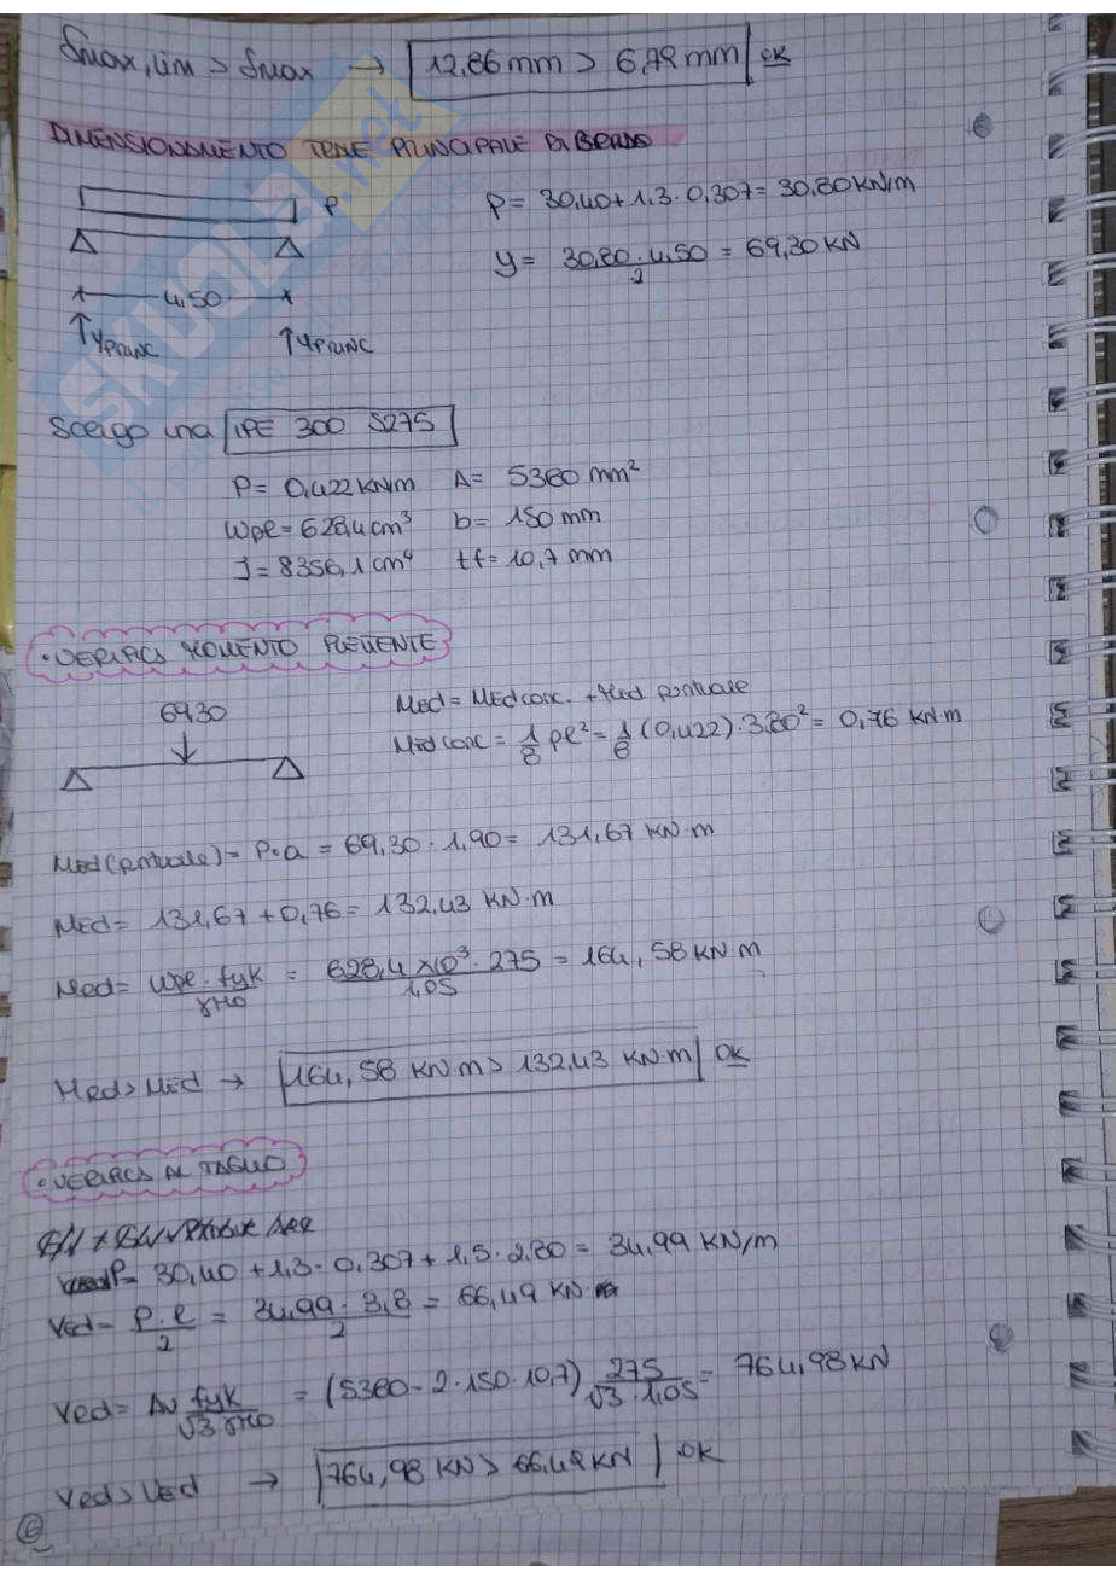 δmax,lim > δmax → 12,86 mm > 6,78 mm OK
DIMENSIONAMENTO TRAVE PRINCIPALE DI BORDO
P
P = 30,40 + 1,3 · 0,307 = 30,80 KN/m
y = 30,80 · 4,50 / 2 = 69,30 KN
4,50
↑YPRINC ↑YPRINC
Scelgo una IPE 300 S275
P = 0,422 KN/m A = 5380 mm²
Wpl = 628,4 cm³ b = 150 mm
J = 8356,1 cm⁴ tf = 10,7 mm
• VERIFICA MOMENTO FLETTENTE
69,30
Med = MEd conc. + Med puntuale
Med conc = 1/8 pl² = 1/8 (0,422) · 3,80² = 0,76 KN·m
Med (puntuale) = P·a = 69,30 · 1,90 = 131,67 KN·m
Med = 131,67 + 0,76 = 132,43 KN·m
Med = Wpl · fyk / γM0 = 628,4 × 10³ · 275 / 1,05 = 164,58 KN·m
MRd > MEd → 164,58 KN·m > 132,43 KN·m OK
• VERIFICA AL TAGLIO
P = 30,40 + 1,3 · 0,307 + 1,5 · 2,80 = 34,99 KN/m
Ved = P · l / 2 = 34,99 · 3,8 / 2 = 66,49 KN
Ved = Av fyk / √3 γM0 = (5380 - 2 · 150 · 10,7) 275 / √3 · 1,05 = 764,98 KN
Vrd > Ved → 764,98 KN > 66,49 KN OK
6
SKUOLA.net